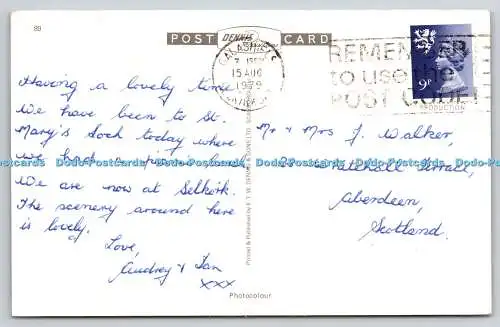 89
POST DENNIS CARD
GALASHIELS
7 15PM
15 AUG
1979
REMEMBER
to use the
POST CODE!
9P
PRODUCTION
Having a lovely time
We have been to St.
Mary's Loch today where
we had a
We are now at Selkirk.
The scenery around here
is lovely.
Love,
Audrey & Ian
xxx
Mr & Mrs J. Walker,
Terrace,
Aberdeen,
Scotland.
Printed & Published by E.T.W. DENNIS & SONS LTD.
Dodo-Postcards Dodo-Postcards Dodo-Postcards Dodo-Postcards Dodo-Postcards
Photocolour